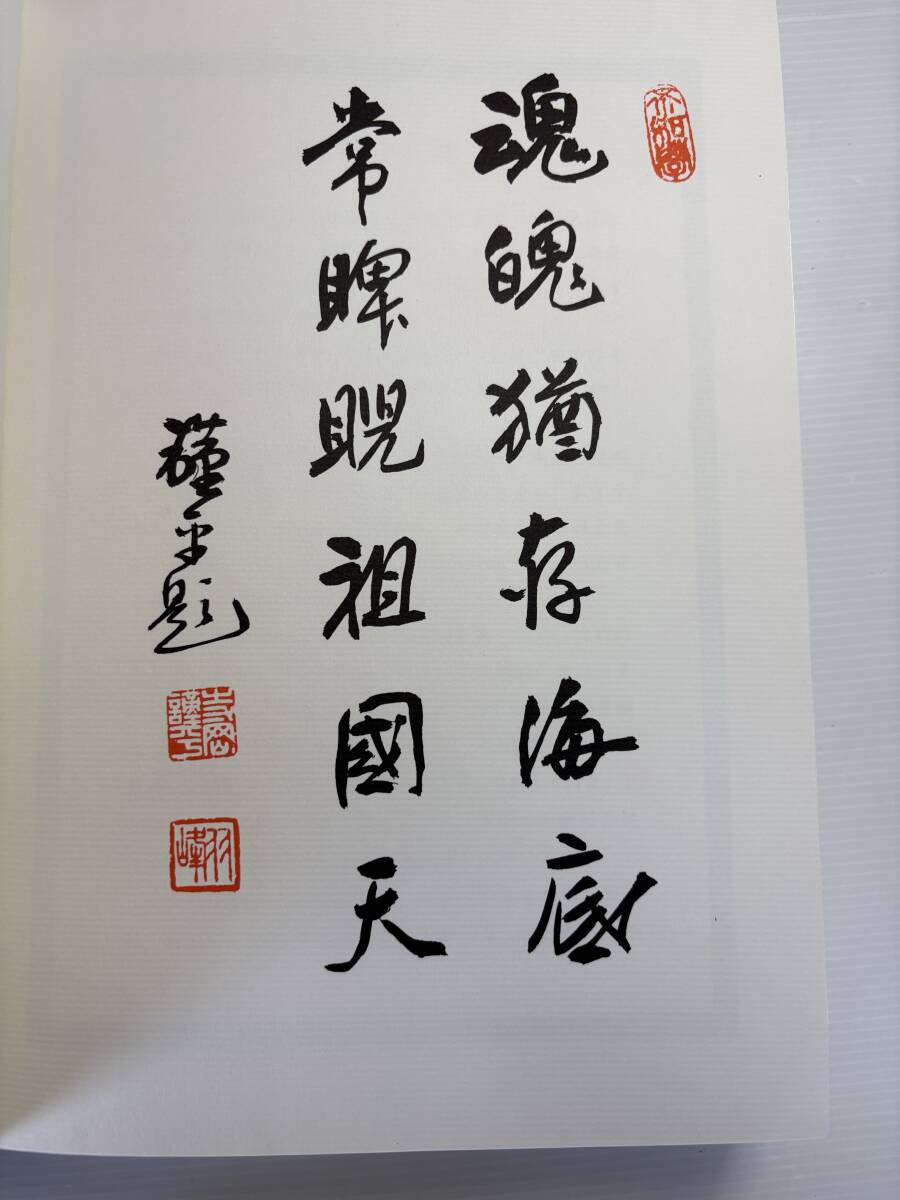 魂魄猶存海底
常睥睨祖國天
謹平題